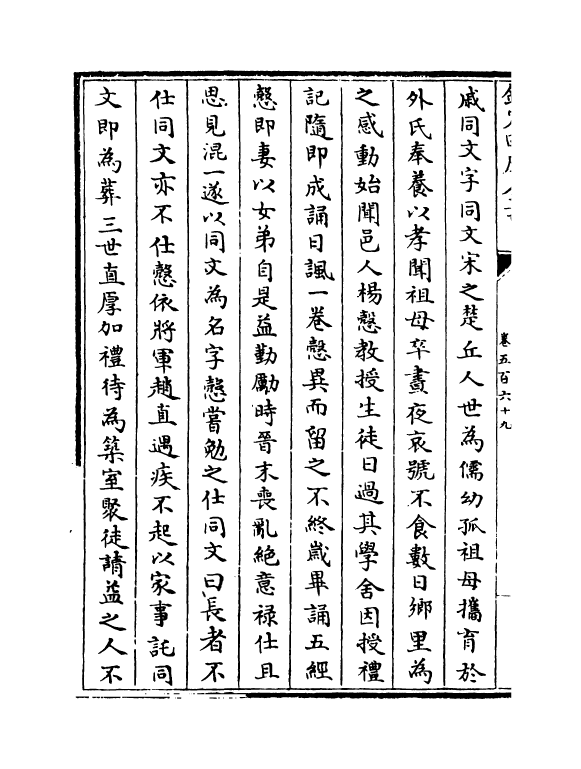 欽定四庫全書
卷五百六十九
戚同文字同文宋之楚丘人世為儒幼孤祖母攜育於
外氏奉養以孝聞祖母卒晝夜哀號不食數日鄉里為
之感動始聞邑人楊慤教授生徒日過其學舍因授禮
記隨即成誦日諷一卷慤異而留之不終歲畢誦五經
慤即妻以女弟自是益勤勵時晉末喪亂絶意禄仕且
思見混一遂以同文為名字慤嘗勉之仕同文曰長者不
仕同文亦不仕慤依將軍趙直遇疾不起以家事託同
文即為葬三世直厚加禮待為築室聚徒請益之人不